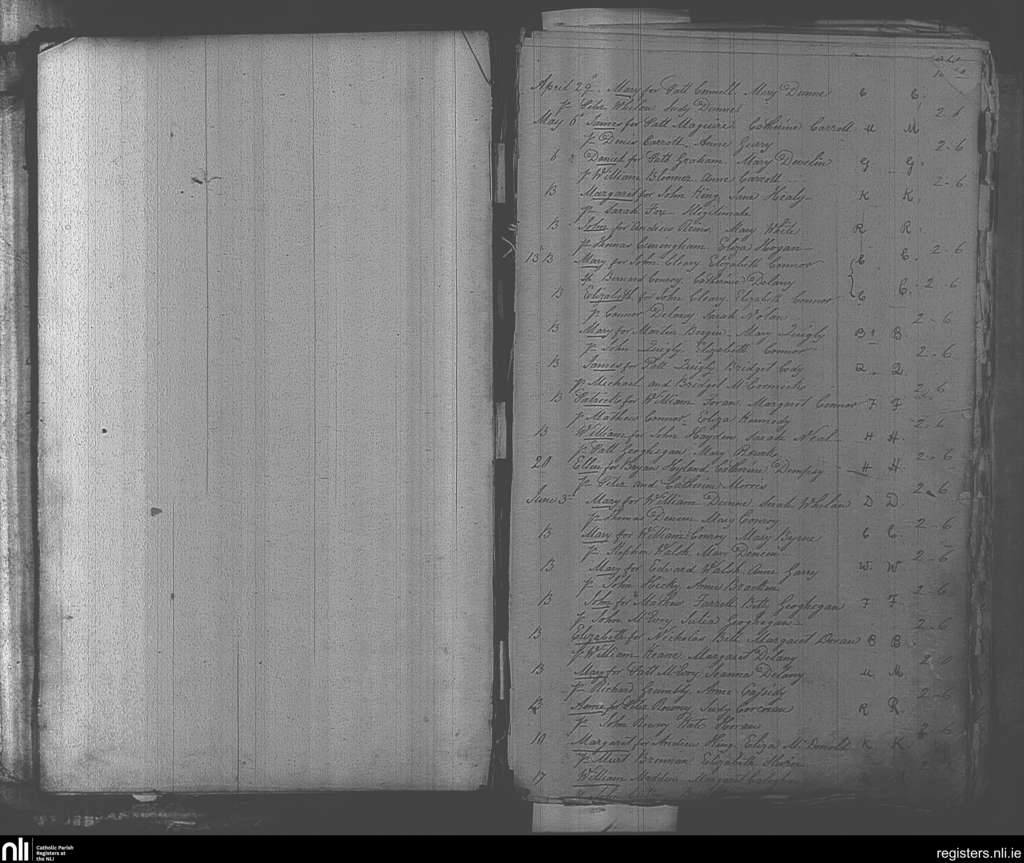 April 29 Mary for Patt Connell Mary Dunne C C.
Sr Peter Whelan Judy Dunne 2-6
May 6 James for Patt Maguire Catherine Carroll M M
Sr Denis Carroll Anne Gerry 2-6
6 Daniel for Patt Graham Mary Develin G G.
Sr William Bloomer Anne Carroll 2-6
B Margaret for John King Jane Healy K K.
Sr Sarah Fox
B John for Andrew Mary White R R.
Sr Thomas Cunningham Eliza Hogan 2-6
13 B Mary for John Cleary Elizabeth Connor C C.
Sr Bernard Conroy Catherine Delany 2-6
B Elizabeth for John Cleary Elizabeth Connor C C.
Sr Connor Delany Sarah Nolan 2-6
B Mary for Martin Bergin Mary Quigly B B
Sr John Quigly Elizabeth Connor 2-6
B James for Patt Quigly Bridget Cody Q. Q.
Sr Michael and Bridget McCormick 2-6
B Patrick for William Foran Margaret Connor F F
Sr Mathew Connor Eliza Kennedy 2-6
B William for John Hayden Sarah Neal H H.
Sr Patt Geoghegan Mary Rourke 2-6
20 Ellen for Bryan Hyland Catherine Dempsy H H.
Sr Peter and Catherine Morris 2-6
June 3rd Mary for William Dunne Sarah Whelan D D
Sr Thomas Mary Conroy 2-6
B Mary for William Conroy Mary Byrne C C.
Sr Stephen Walsh Mary 2-6
B Mary for Edward Walsh Anne Garry W. W
Sr John Hicky Anne Bracken 2-6
B John for Mathew Farrell Bett Geoghegan F F.
Sr John McEvoy Julia Geoghegan 2-6
B Elizabeth for Nicholas Bell Margaret Doran B B.
Sr William Keane Margaret Delany
B Mary for Patt McEvoy Joanna Delany M M.
Sr Richard Grumbly Anne Cassidy 2-6
B Anne for Peter Rooney Judy Corcoran R R.
Sr John Roury Kate Horan 6
10 Margaret for Andrew King Eliza McDonold K K
Sr Murt Brennan Elizabeth
17 William Madden Margaret
nli Catholic Parish Registers at the NLI
registers.nli.ie